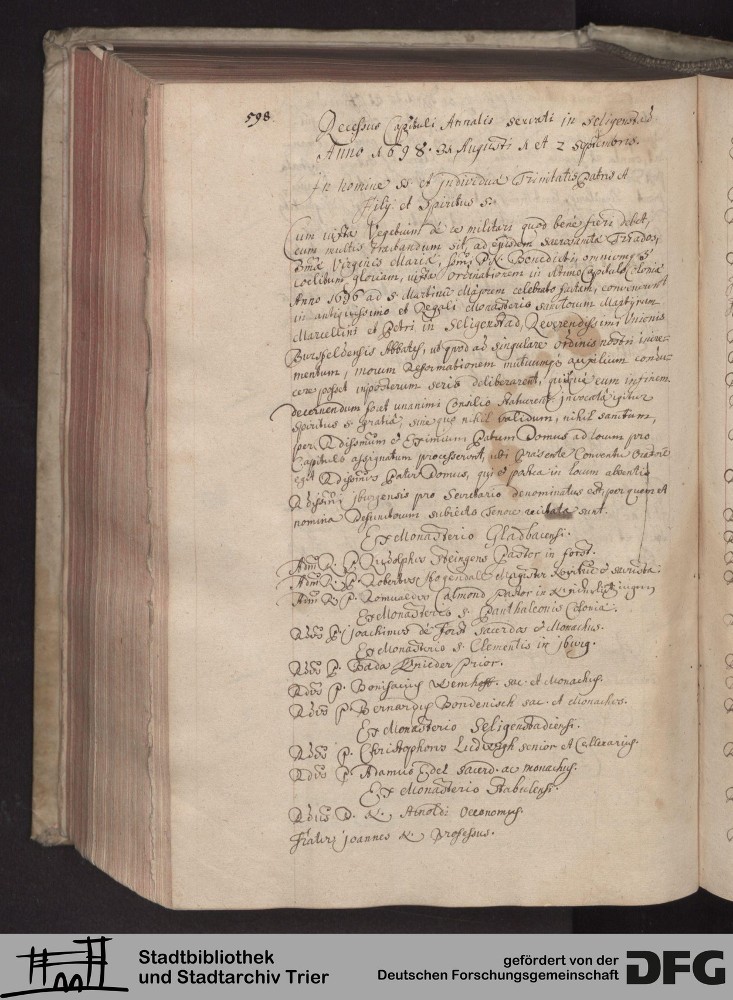 598.
Recessus Capituli Annalis servati in Seligenstad
Anno 1698. 31 Augusti 1 et 2 Septembris.
In Nomine SS. et Individuae Trinitatis Patris et
Filij et Spiritus S.
Cum iuxta Vegetium de re militari quod bene fieri debet,
cum multis tractandum sit, ad ejusdem sacrosanctae Triados,
Bmae Virginis Mariae, Smi P. N. Benedicti, omniumque
coelitum gloriam, iuxta ordinationem in Capitulo Coloniae
Anno 1696 ad S. Martinum Majorem celebrato factam, convenerunt
in antiquissimo et Regali Monasterio sanctorum Martyrum
Marcellini et Petri in Seligenstad, Reverendissimi Unionis
Bursfeldensis Abbates, ut quod ad singulare ordinis nostri incre-
mentum, morum Reformationem mutuumque auxilium condu-
cere posset inposterum serio deliberarent, quidque eum in finem
decernendum foret unanimi Consilio statuerent. Invocata igitur
Spiritus S. gratia, sine quo nihil validum, nihil sanctum,
per Rdissimum et Eximium Patrem Domus ad locum pro
Capitulo assignatum processerunt, ubi praesente Conventu
egit Rdissimus Pater Domus, qui et postea in locum absentis
Rdissimi Iburgensis pro Secretario denominatus est, per quem et
nomina Defunctorum subiecto tenore recitata sunt.
Ex Monasterio Gladbacensi.
Adm R. P. Rudolphus Steingens Pastor in forst.
Adm R. P. Robertus Magister et sacrista.
Adm R. P. Romualdus Calmond Pastor in
Ex Monasterio S. Panthaleonis Coloniae.
Rdus P. Joachimus de forst sacerdos et Monachus.
Ex Monasterio S. Clementis in Iburg.
Rdus P. Bada Prior.
Rdus P. Bonifacius Wemhoff. sac. et Monachus.
Rdus P. Bernardus sac. et Monachus.
Ex Monasterio Seligenstadiensi.
Rdus P. Christophorus Ludwigh senior et Cellerarius.
Rdus P. Adamus Edel Sacerd. ac monachus.
Ex Monasterio Stabulensi.
Rdus D. N. Arnoldi Oeconomus.
Frater Joannes N. Professus.
Stadtbibliothek
und Stadtarchiv Trier
gefördert von der
Deutschen Forschungsgemeinschaft
DFG